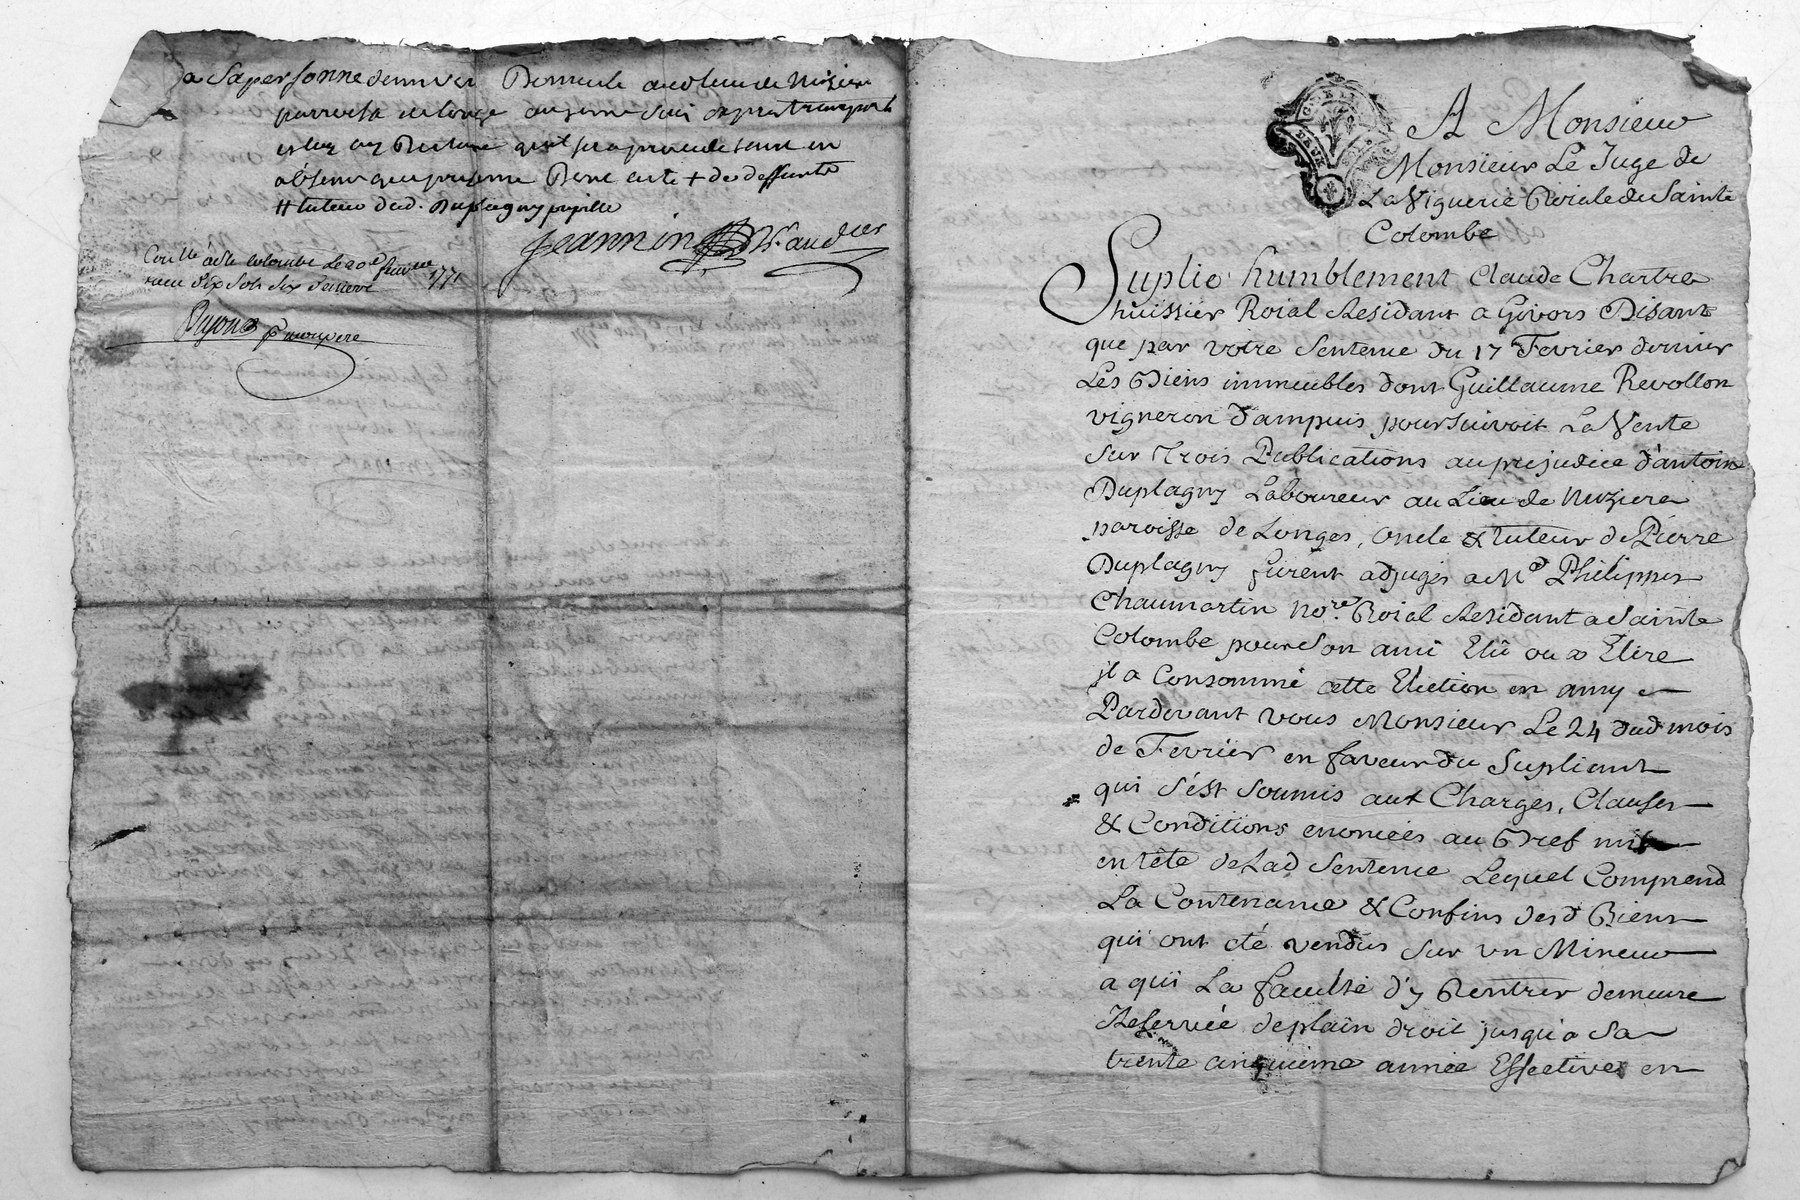 a sa personne
Domicile au lieu de Nuziere
parroisse de longe
Jeannin
Con.lle a Ste Colombe Le 20e fevrier 1771
recu dix sols six deniers
A Monsieur
Monsieur Le Juge de
La Viguerie Roiale du Sainte
Colombe
Suplie humblement Claude Chartre
huissier Roial Residant a Givors Disant
que par votre Sentence du 17 Fevrier dernier
Les Biens immeubles dont Guillaume Revollon
vigneron d'ampuis poursuivoit La Vente
Sur Trois Publications au prejudice d'antoine
Duplagny Laboureur au Lieu de Nuziere
paroisse de Longes, oncle & tuteur de Pierre
Duplagny furent adjugés a Me Philippes
Chaumartin No.re Roial Residant a Sainte
Colombe pour Son ami Elû ou a Elire
il a Consommé cette Election en amy
Pardevant vous Monsieur Le 24 dud mois
de Fevrier en faveur du Supliant
qui s'ést Soumis aux Charges, Clauses
& Conditions enoncées au Bref mis
en tête de Lad Sentence Lequel Comprend
La Contenance & Confins desd Biens
qui ont été vendus Sur un Mineur
a qui La faculté d'y Rentrer demeure
Reservée de plain droit jusqu'a Sa
trente cinquieme année Effective en